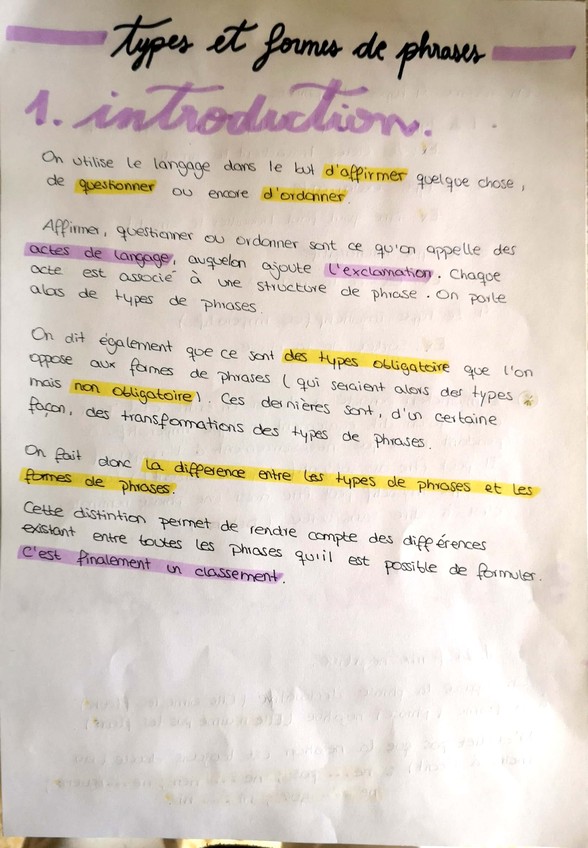 types et formes de phrases
1. introduction.
On utilise le langage dans le but d'affirmer quelque chose,
de questionner ou encore d'ordonner.
Affirmer, questionner ou ordonner sont ce qu'on appelle des
actes de langage, auquelon ajoute l'exclamation. Chaque
acte est associé à une structure de phrase. On parle
alors de types de phrases.
On dit également que ce sont des types obligatoire que l'on
oppose aux formes de phrases (qui seraient alors des types
mais non obligatoire). Ces dernières sont, d'un certaine
façon, des transformations des types de phrases.
On fait donc la difference entre les types de phrases et les
formes de phrases.
Cette distintion permet de rendre compte des différences
existant entre toutes les phrases qu'il est possible de formuler.
C'est finalement un classement.